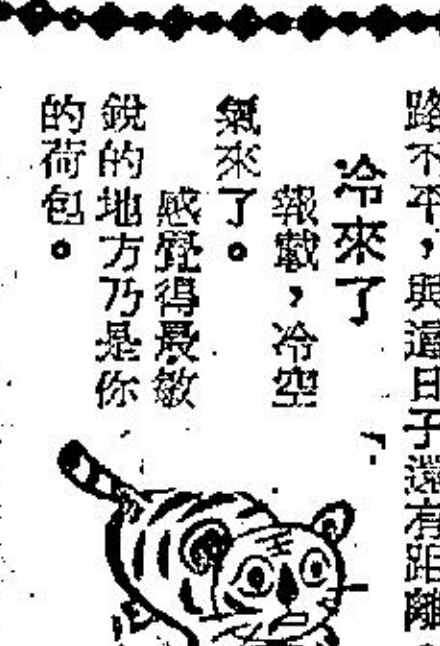 路不平，與過日子還有距離
冷來了
報載，冷空
氣來了。
感覺得最敏
銳的地方乃是你
的荷包。